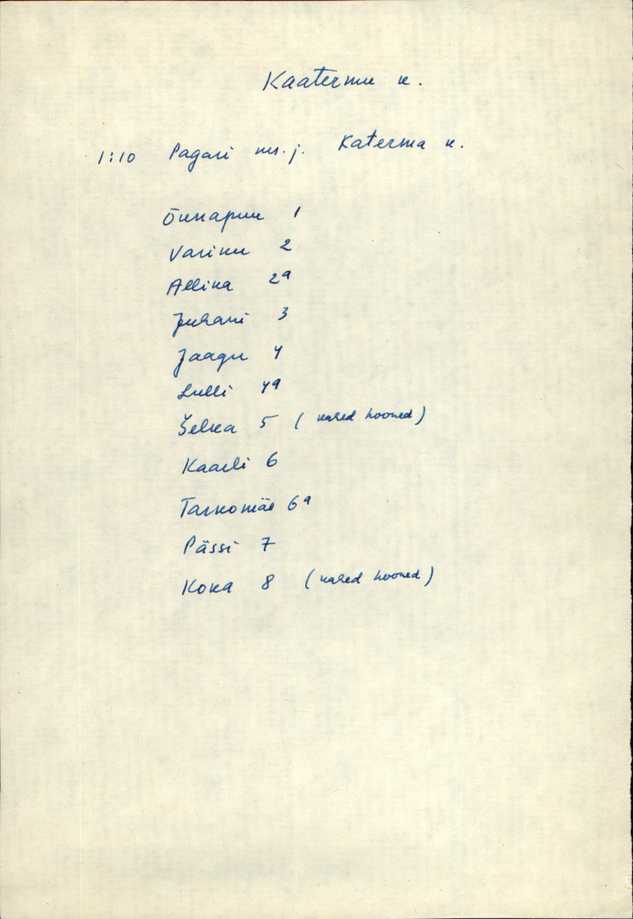 Kaatermu k.
1:10 Pagari ms. j. Katerma k.
Õunapuu 1
Variku 2
Allika 2a
Juhani 3
Jaagu 4
Lulli 4a
Šelka 5 (kahed hooned)
Kaarli 6
Tarkomäe 6a
Pässi 7
Koka 8 (kahed hooned)